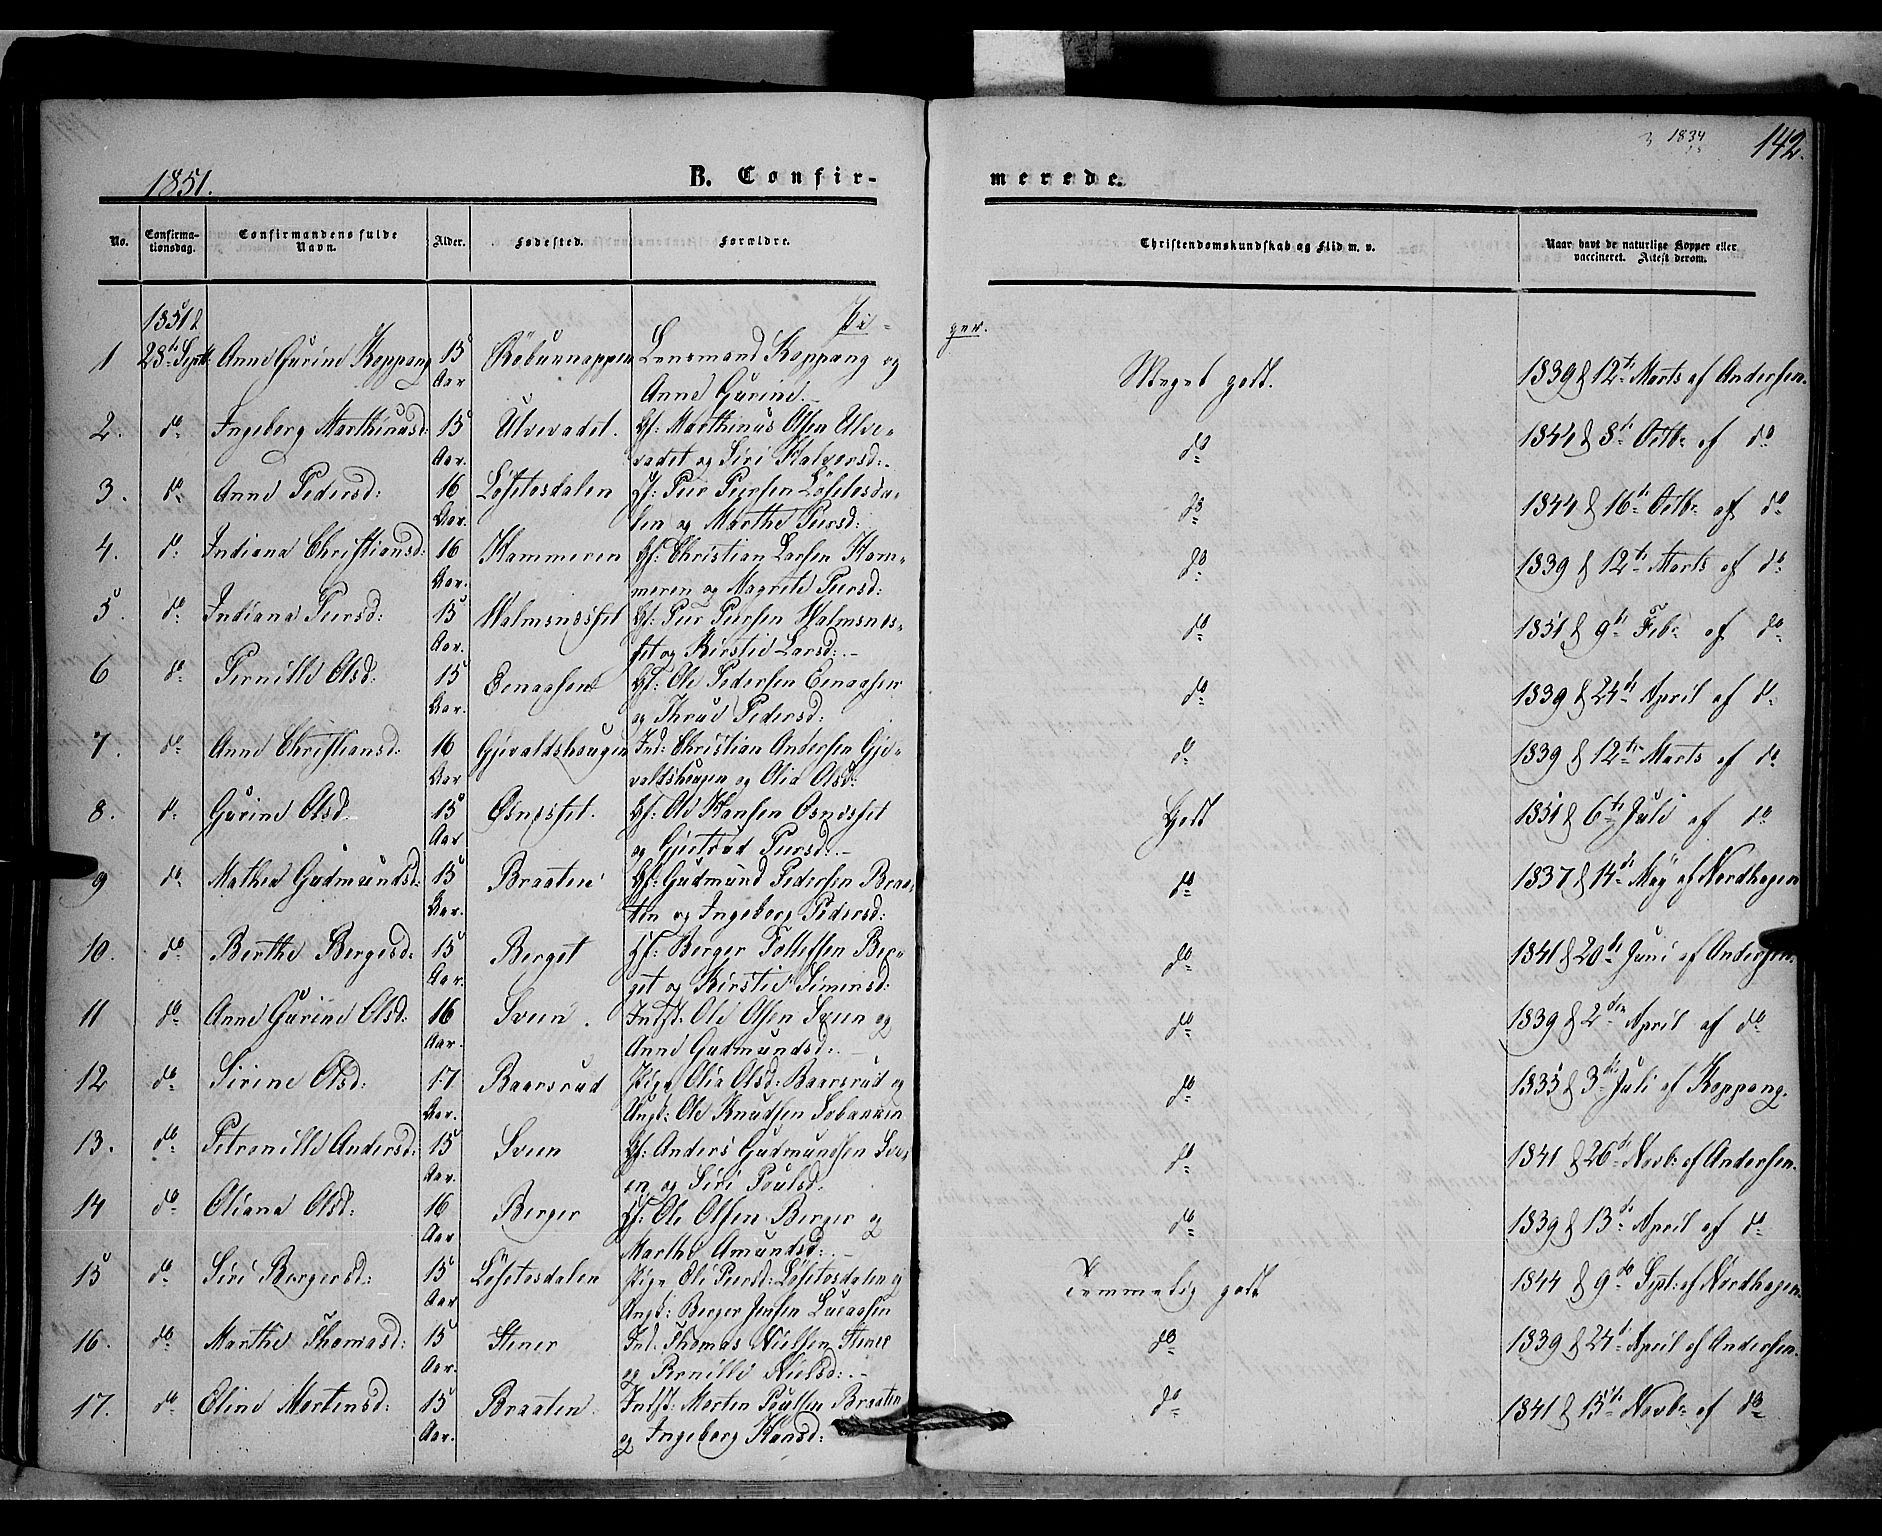 3 1834
142.
1851.
B. Confir-
merede.
No.
Confirma-
tionsdag.
Confirmandens fulde
Navn.
Alder.
Fødested.
Forældre.
Christendomskundskab og Flid m. v.
Naar havt de naturlige Kopper eller
vaccineret. Attest derom.
1851 d
Pi-
ger.
1 28de Septb: Anne Gurine Koppang 15 Lensmand Koppang og
Aar Anne Gurine. Meget godt. 1839 d 12te Marts af Andersen.
2. do Ingeborg Marthinusd: 15 Ulvevadet. Gf: Marthinus Olsen Ulve-
Aar. vadet og Siri Halversd: do 1844 d 8de Octbr af do
3. do Anne Pedersd: 16 Löfetosdalen Gf: Peer Peersen Löfetosda-
Aar. len og Marthe Peersd: do 1844 d 16de Octbr af do
4. do Indiana Christiansd: 16 Hammeren Gf: Christian Larsen Ham-
Aar. meren og Magrete Peersd: do 1839 d 12te Marts af do
5. do Indiana Peersd: 15 Malmnesset Gf: Peer Peersen Malmnes-
Aar. set og Kirstie Larsd: do 1851 d 9de Febr af do
6 do Pernille Olsd: 15 Eenaasen Gf: Ole Pedersen Eenaasen
Aar. og Thrud Pedersd: do 1839 d 24de April af do
7. do Anne Christiansd: 16 Gjevaldshaugen Ind: Christian Andersen Gje-
Aar valdshaugen og Olia Olsd: do 1839 d 12te Marts af do
8. do Gurine Olsd: 15 Osnesset. Gf: Ole Hansen Osnesset
Aar og Gjertrud Peersd: Godt 1851 d 6te Juli af do
9 do Mathea Gudmundsd: 15 Braaten Gf: Gudmund Pedersen Braa-
Aar. ten og Ingeborg Pedersd: do 1837 d 14de May af Nordhagen
10. do Berthe Bergersd: 15 Berget Gf: Berger Tollefsen Ber-
Aar. get og Kirstie Simensd: do 1841 d 20de Juni af Andersen.
11 do Anne Gurine Olsd: 16 Sveen. Indst: Ole Olsen Sveen og
Aar. Anne Gudmundsd: do 1839 d 2den April af do
12 do Sirine Olsd: 17 Baarsrud Pige Olia Olsd: Baarsrud og
Aar. Ungk: Ole Knudsen do 1835 d 3de Juli af Koppang.
13. do Petronille Andersd: 15 Sveen Gf: Anders Gudmundsen Sve-
Aar. en og Siri Poulsd: do 1841 d 26de Novb: af Andersen.
14 do Oliana Olsd: 16 Berger Gf: Ole Olsen Berger og
Aar Marthe Amundsd: do 1839 d 13de April af do
15 do Siri Bergersd: 15 Löfetosdalen Pige Oli Peersd: Löfetosdalen og
Aar Ungk: Berger Jensen Temmelig godt 1844 d 9de Sept: af Nordhagen.
16. do Marthe Thomasd: 15 Stener Ind: Thomas Nielsen Stener
Aar. og Pernille Nielsd: do 1839 d 24de April af Andersen.
17. do Eline Mortensd: 15 Braaten. Indst: Morten Poulsen Braaten
Aar. og Ingeborg Hansd: do 1841 d 15de Novbr af do